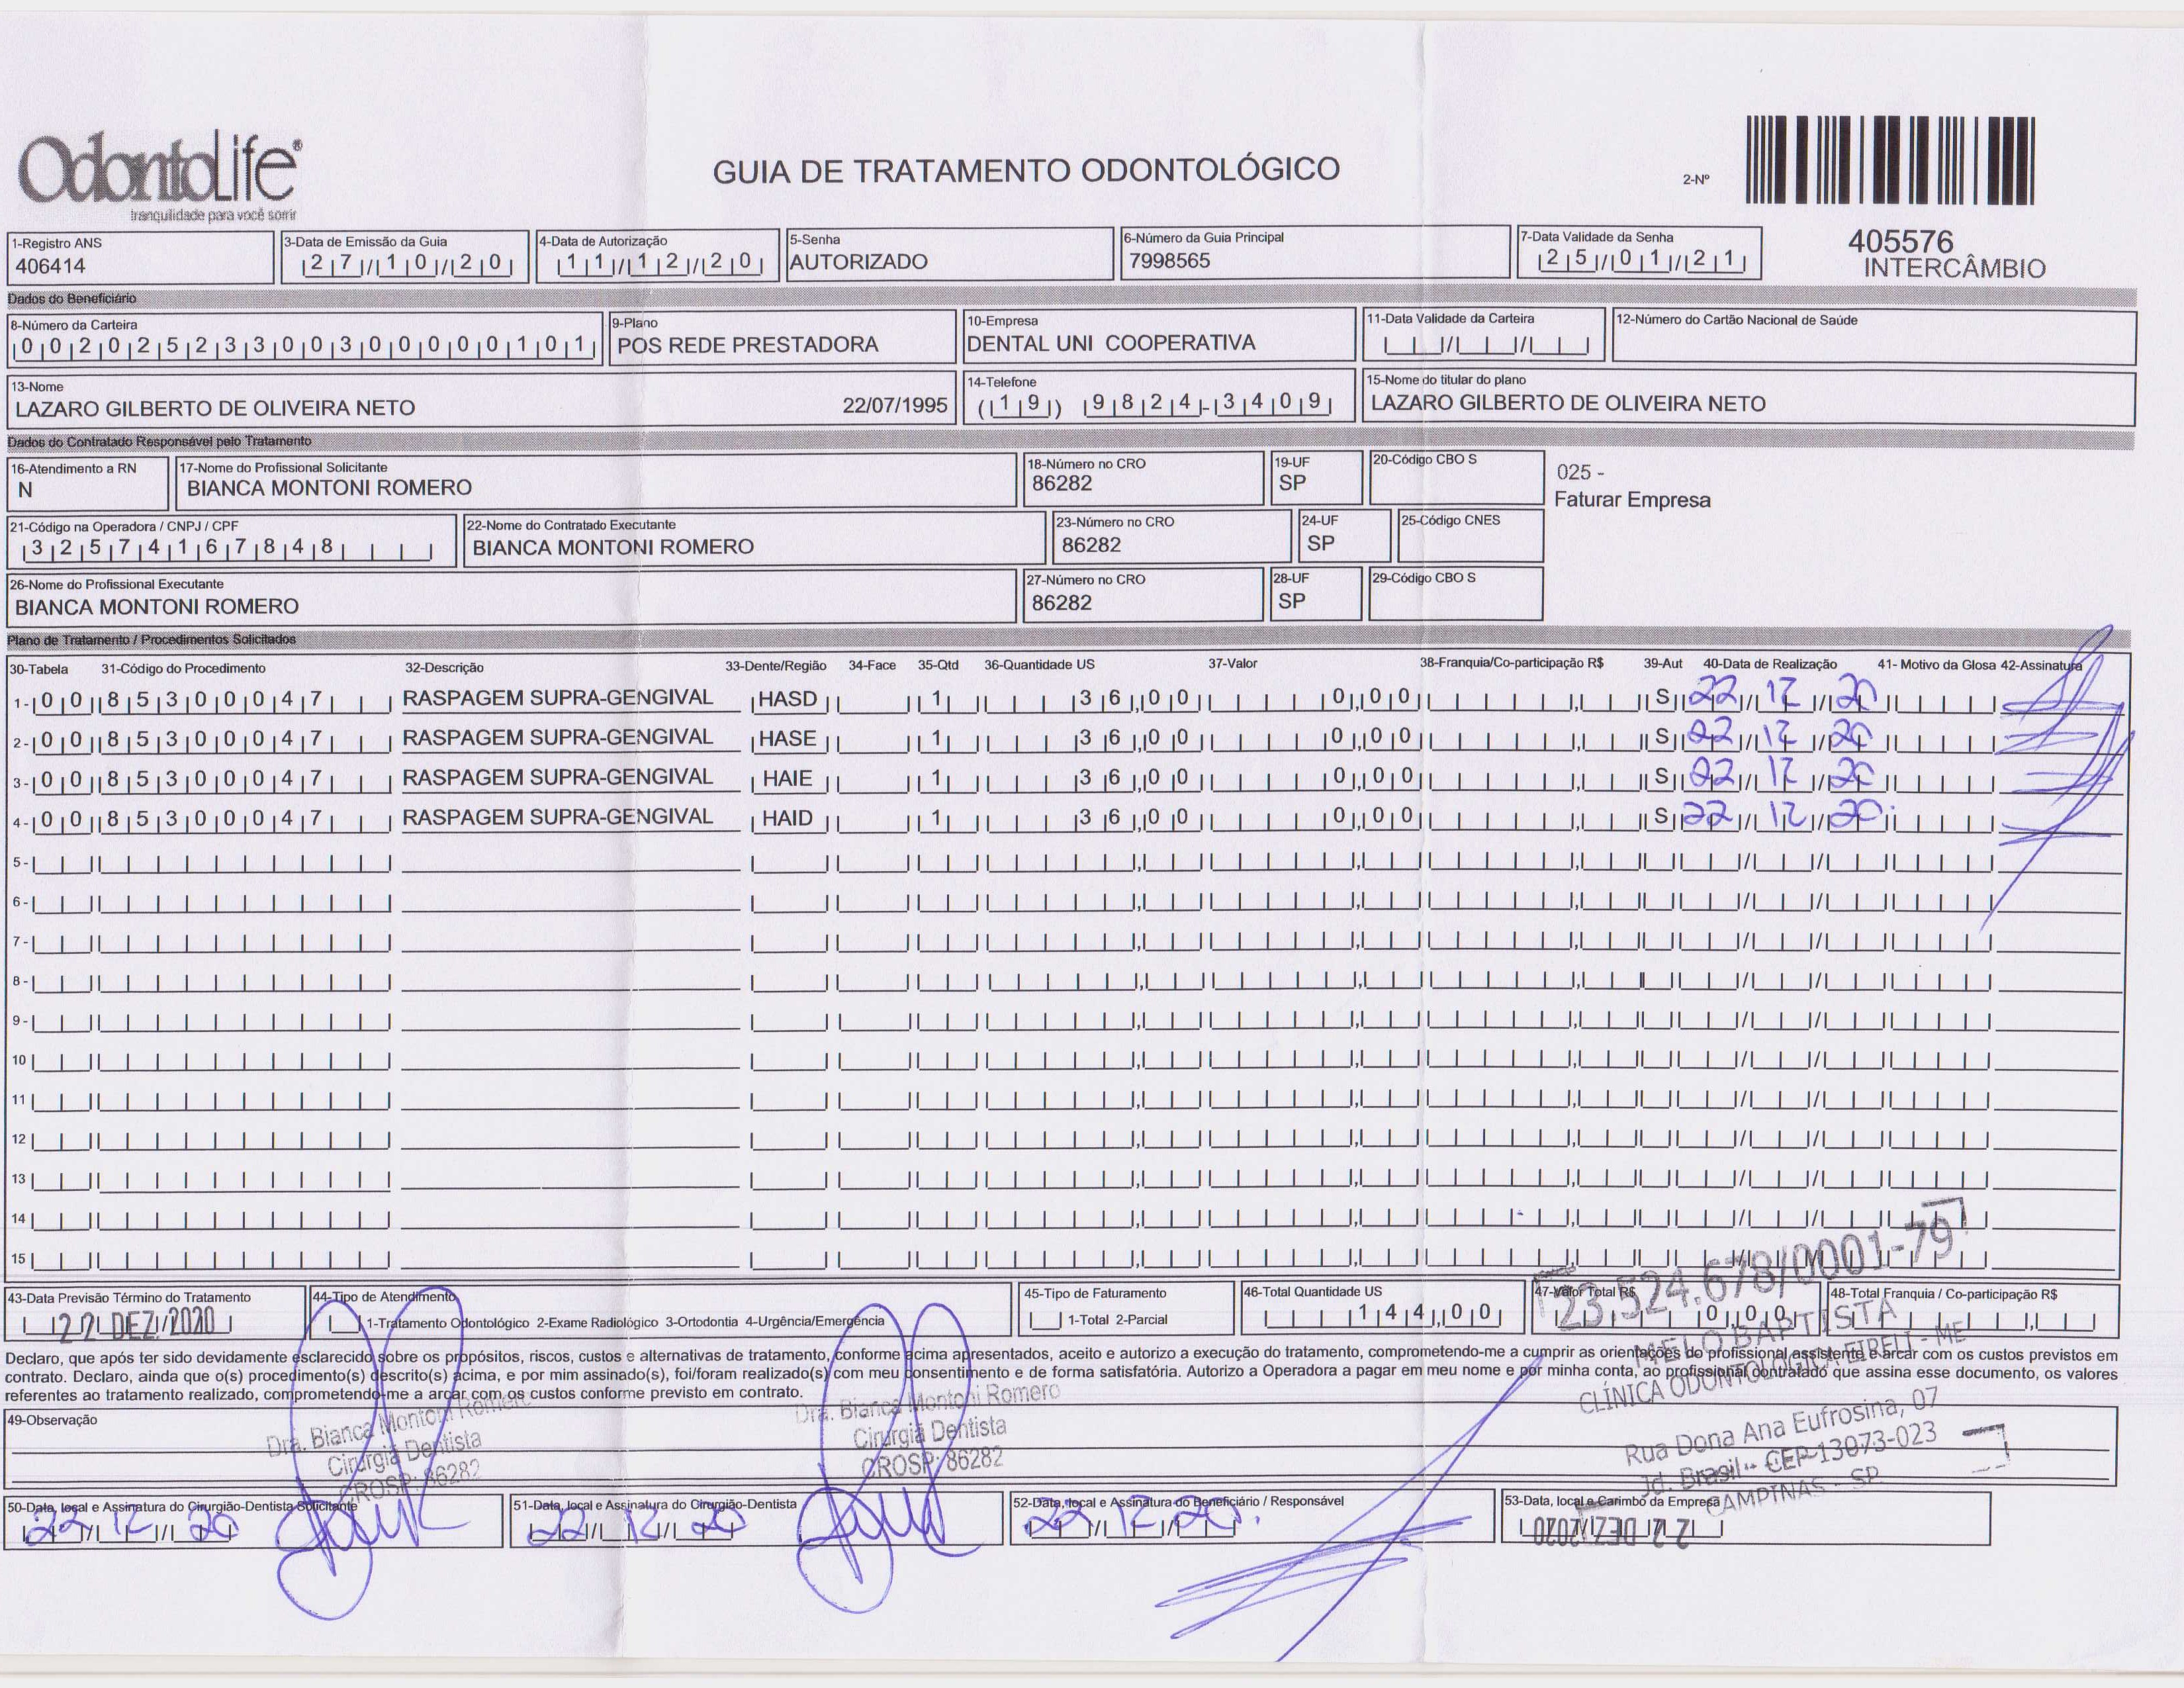 OdontoLife®
tranquilidade para você sorrir
GUIA DE TRATAMENTO ODONTOLÓGICO
2-Nº
405576
INTERCÂMBIO
1-Registro ANS
406414
3-Data de Emissão da Guia
27/10/20
4-Data de Autorização
11/12/20
5-Senha
AUTORIZADO
6-Número da Guia Principal
7998565
7-Data Validade da Senha
25/01/21
Dados do Beneficiário
8-Número da Carteira
00202523300300000101
9-Plano
POS REDE PRESTADORA
10-Empresa
DENTAL UNI COOPERATIVA
11-Data Validade da Carteira
12-Número do Cartão Nacional de Saúde
13-Nome
LAZARO GILBERTO DE OLIVEIRA NETO 22/07/1995
14-Telefone
(19) 9824-3409
15-Nome do titular do plano
LAZARO GILBERTO DE OLIVEIRA NETO
Dados do Contratado Responsável pelo Tratamento
16-Atendimento a RN
N
17-Nome do Profissional Solicitante
BIANCA MONTONI ROMERO
18-Número no CRO
86282
19-UF
SP
20-Código CBO S
025 -
Faturar Empresa
21-Código na Operadora / CNPJ / CPF
32574167848
22-Nome do Contratado Executante
BIANCA MONTONI ROMERO
23-Número no CRO
86282
24-UF
SP
25-Código CNES
26-Nome do Profissional Executante
BIANCA MONTONI ROMERO
27-Número no CRO
86282
28-UF
SP
29-Código CBO S
Plano de Tratamento / Procedimentos Solicitados
30-Tabela 31-Código do Procedimento 32-Descrição 33-Dente/Região 34-Face 35-Qtd 36-Quantidade US 37-Valor 38-Franquia/Co-participação R$ 39-Aut 40-Data de Realização 41- Motivo da Glosa 42-Assinatura
1- 00 85300047 RASPAGEM SUPRA-GENGIVAL HASD 1 36,00 0,00 S 22/12/20
2- 00 85300047 RASPAGEM SUPRA-GENGIVAL HASE 1 36,00 0,00 S 22/12/20
3- 00 85300047 RASPAGEM SUPRA-GENGIVAL HAIE 1 36,00 0,00 S 22/12/20
4- 00 85300047 RASPAGEM SUPRA-GENGIVAL HAID 1 36,00 0,00 S 22/12/20
5-
6-
7-
8-
9-
10
11
12
13
14
15
43-Data Previsão Término do Tratamento
22 DEZ 2020
44-Tipo de Atendimento
1-Tratamento Odontológico 2-Exame Radiológico 3-Ortodontia 4-Urgência/Emergência
45-Tipo de Faturamento
1-Total 2-Parcial
46-Total Quantidade US
144,00
47-Valor Total R$
0,00
48-Total Franquia / Co-participação R$
23.524.678/0001-79
MELO BAPTISTA
CLÍNICA ODONTOLÓGICA EIRELI - ME
Rua Dona Ana Eufrosina, 07
Jd. Brasil - CEP 13073-023
CAMPINAS - SP
Declaro, que após ter sido devidamente esclarecido sobre os propósitos, riscos, custos e alternativas de tratamento, conforme acima apresentados, aceito e autorizo a execução do tratamento, comprometendo-me a cumprir as orientações do profissional assistente e arcar com os custos previstos em
contrato. Declaro, ainda que o(s) procedimento(s) descrito(s) acima, e por mim assinado(s), foi/foram realizado(s) com meu consentimento e de forma satisfatória. Autorizo a Operadora a pagar em meu nome e por minha conta, ao profissional contratado que assina esse documento, os valores
referentes ao tratamento realizado, comprometendo-me a arcar com os custos conforme previsto em contrato.
49-Observação
Dra. Bianca Montoni Romero
Cirurgiã Dentista
CROSP: 86282
Dra. Bianca Montoni Romero
Cirurgiã Dentista
CROSP: 86282
50-Data, local e Assinatura do Cirurgião-Dentista Solicitante
22/12/20
51-Data, local e Assinatura do Cirurgião-Dentista
22/12/20
52-Data, local e Assinatura do Beneficiário / Responsável
22/12/20
53-Data, local e Carimbo da Empresa
22 DEZ 2020